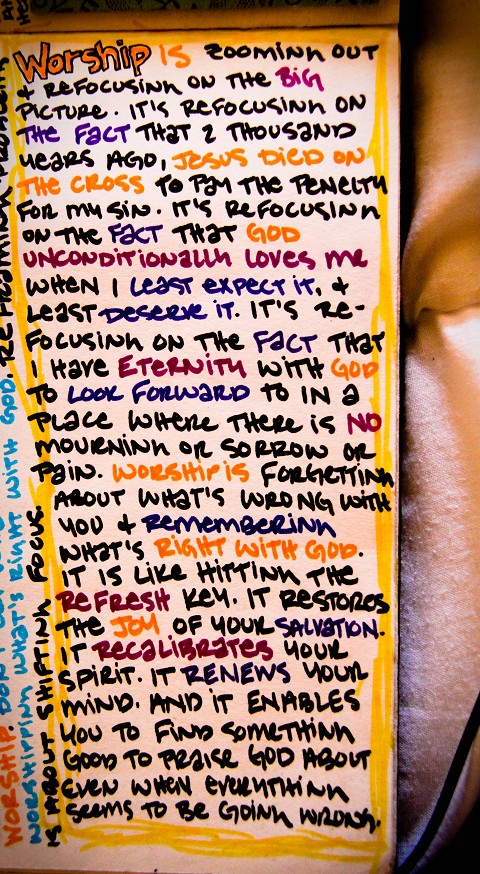 Worship is zooming out
& refocusing on the big
picture. It's refocusing on
the fact that 2 thousand
years ago, Jesus died on
the cross to pay the penelty
for my sin. It's refocusing
on the fact that God
unconditionally loves me
when I least expect it, &
least deserve it. It's re-
focusing on the fact that
I have eternity with God
to look forward to in a
place where there is no
mourning or sorrow or
pain. Worship is forgetting
about what's wrong with
you & remembering
what's right with God.
It is like hitting the
refresh key. It restores
the joy of your salvation.
It recalibrates your
spirit. It renews your
mind. And it enables
you to find something
good to praise God about
even when everything
seems to be going wrong.
is about shifting focus.
worshipping what's right with God.
Worship